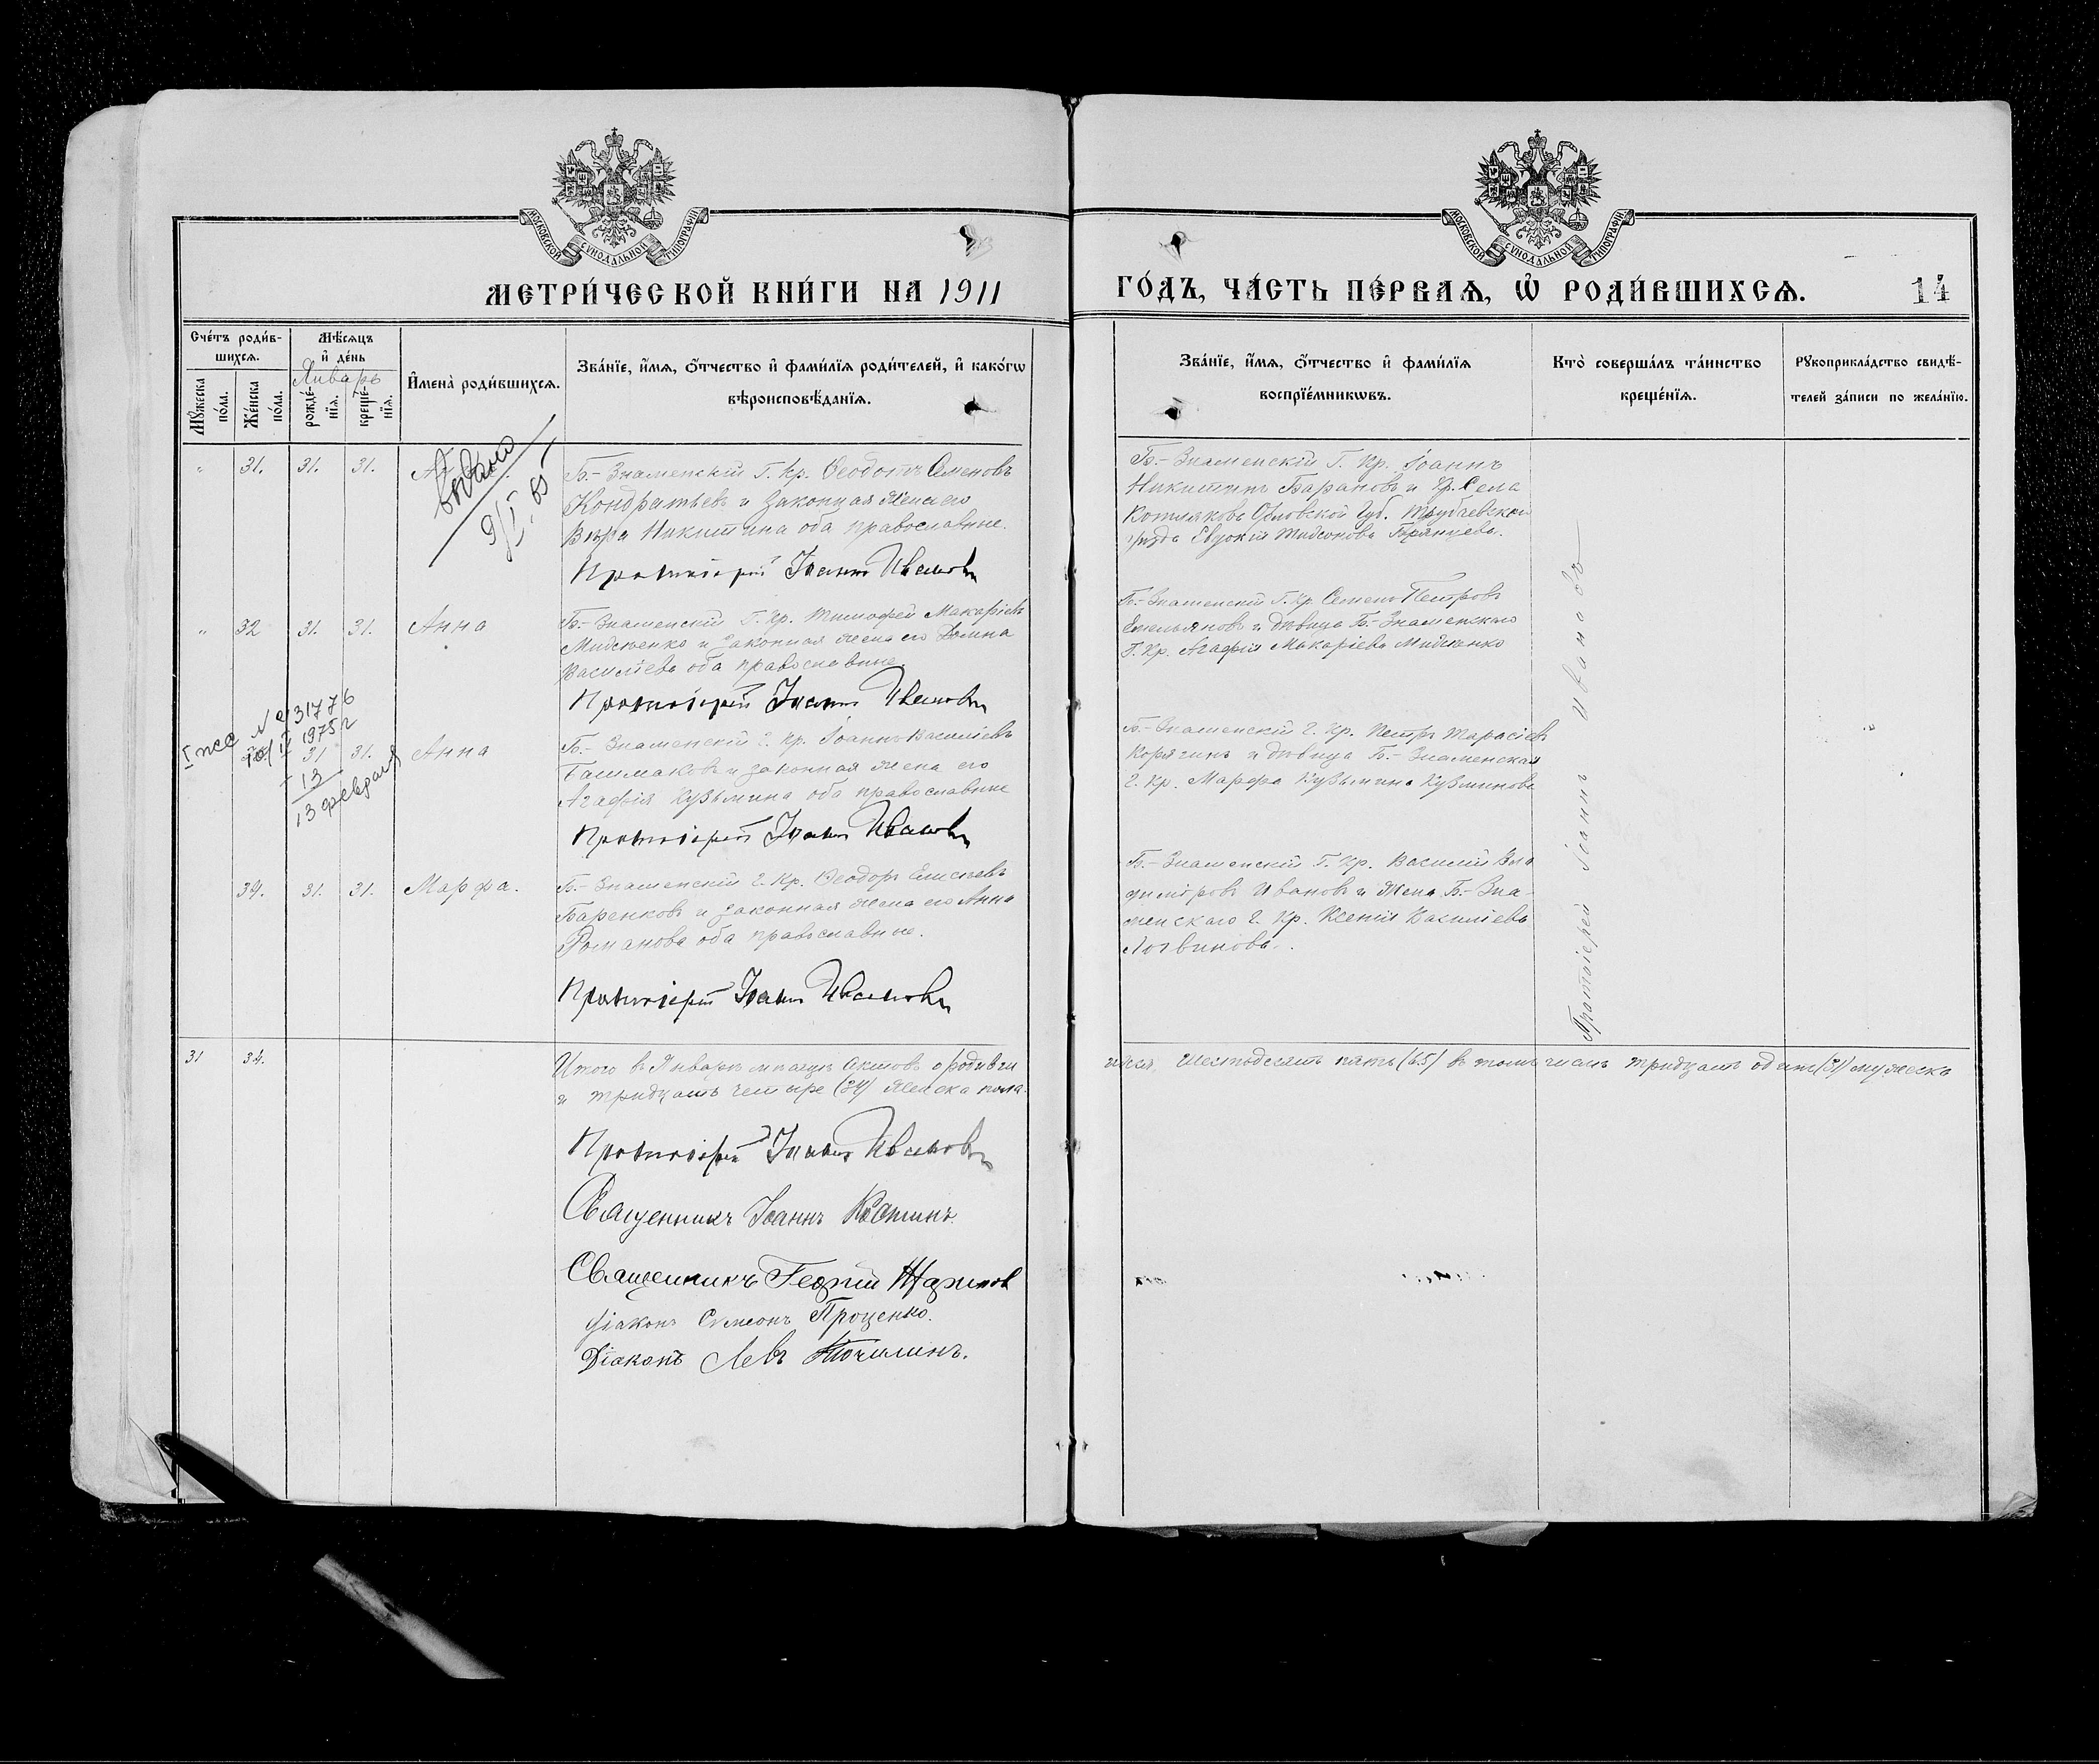 МОСКОВСКОЙ СѴНОДАЛЬНОЙ ТИПОГРАФІИ
МОСКОВСКОЙ СѴНОДАЛЬНОЙ ТИПОГРАФІИ
МЕТРИ́ЧЕСКОЙ КНИ́ГИ НА 1911
ГО́ДЪ, ЧА́СТЬ ПЕ́РВАѦ, Ѡ҆ РОДИ́ВШИХСѦ.
14
Сче́тъ роди́в-
шихсѧ.
Мꙋ́жеска по́ла.
Же́нска по́ла.
Мѣ́сѧцъ
и҆ де́нь
Январь
рожде́-нїѧ.
креще́-нїѧ.
И҆мена̀ роди́вшихсѧ.
Зва́нїе, и҆́мѧ, ѻ҆́тчество и҆ фами́лїѧ роди́телей, и҆ како́гѡ
вѣроисповѣ́данїѧ.
Зва́нїе, и҆́мѧ, ѻ҆́тчество и҆ фами́лїѧ
воспрїе́мникѡвъ.
Кто̀ соверша́лъ та́инство
креще́нїѧ.
Рꙋкоприкла́дство свидѣ́-
телей за́писи по жела́нїю.
" 31. 31. 31.
Выдано
9/I.65
Б.-Знаменскій Г. Кр. Ѳеодотъ Семеновъ
Кондратьевъ и законная жена его
Вѣра Никитина оба православные.
Протоіерей Іоаннъ Ивановъ
Б.-Знаменскій Г. Кр. Іоаннъ
Никитинъ Барановъ и Кр. Села
Орловской Губ. Трубчевскаго
уѣзда Евдокія
" 32 31. 31. Анна
Б.-Знаменскій Г. Кр. Тимофей Макаріевъ
Мидсенко и законная жена его Домна
Василіева оба православные.
Протоіерей Іоаннъ Ивановъ
Б.-Знаменскій Г. Кр. Семенъ Петровъ
Емельяновъ и дѣвица Б.-Знаменскаго
Г. Кр. Агафія Макаріева Мидсенко
I жс № 31776
10/II 1975 г
31 31. Анна
+ 13
13 февраля
Б.-Знаменскій Г. Кр. Іоаннъ Василіевъ
Башмаковъ и законная жена его
Агафія Кузьмина оба православные
Протоіерей Іоаннъ Ивановъ
Б.-Знаменскій Г. Кр. Петръ Тарасіевъ
Корягинъ и дѣвица Б.-Знаменская
Г. Кр. Марфа Кузьмина Кузминова
34. 31. 31. Марфа.
Б.-Знаменскій Г. Кр. Ѳеодоръ Елисѣевъ
Баренковъ и законная жена его Анна
Романова оба православные.
Протоіерей Іоаннъ Ивановъ
Б.-Знаменскій Г. Кр. Василій Вла
диміровъ Ивановъ и жена Б.-Зна-
менскаго Г. Кр. Ксенія Василіева
Логвинова.
Протоіерей Іоаннъ Ивановъ
31 34.
Итого въ Январѣ мѣсяцѣ актовъ о родивши
хся, шестьдесятъ пять (65) въ томъ числѣ тридцать одинъ (31) мужеска
и тридцать четыре (34) женска пола.
Протоіерей Іоаннъ Ивановъ
Священникъ Іоаннъ Костинъ
Священникъ Георгій
Діаконъ Симеонъ Проценко.
Діаконъ Левъ Точилинъ.